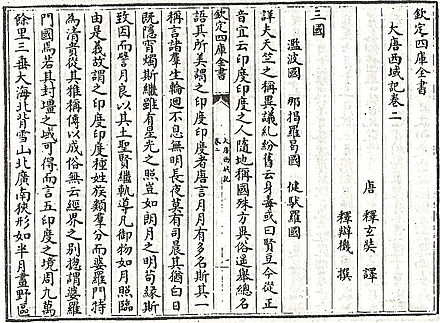 欽定四庫全書
大唐西域記卷二
唐 釋玄奘 譯
釋辯機 撰
三國
濫波國 那揭羅曷國 健馱羅國
詳夫天竺之稱異議糾紛舊云身毒或曰賢豆今從正
音宜云印度印度之人隨地稱國殊方異俗遥舉總名
欽定四庫全書 大唐西域記 卷二
語其所美謂之印度印度者唐言月月有多名斯其一
稱言諸羣生輪迴不息無明長夜莫有司晨其猶白日
既隱宵燭斯繼雖有星光之照豈如朗月之明苟緣斯
致因而譬月良以其土聖賢繼軌導凡御物如月照臨
由是義故謂之印度印度種姓族類羣分而婆羅門特
為清貴從其雅稱傳以成俗無云經界之别總謂婆羅
門國焉若其封壃之域可得而言五印度之境周九萬
餘里三垂大海北背雪山北廣南狹形如半月畫野區